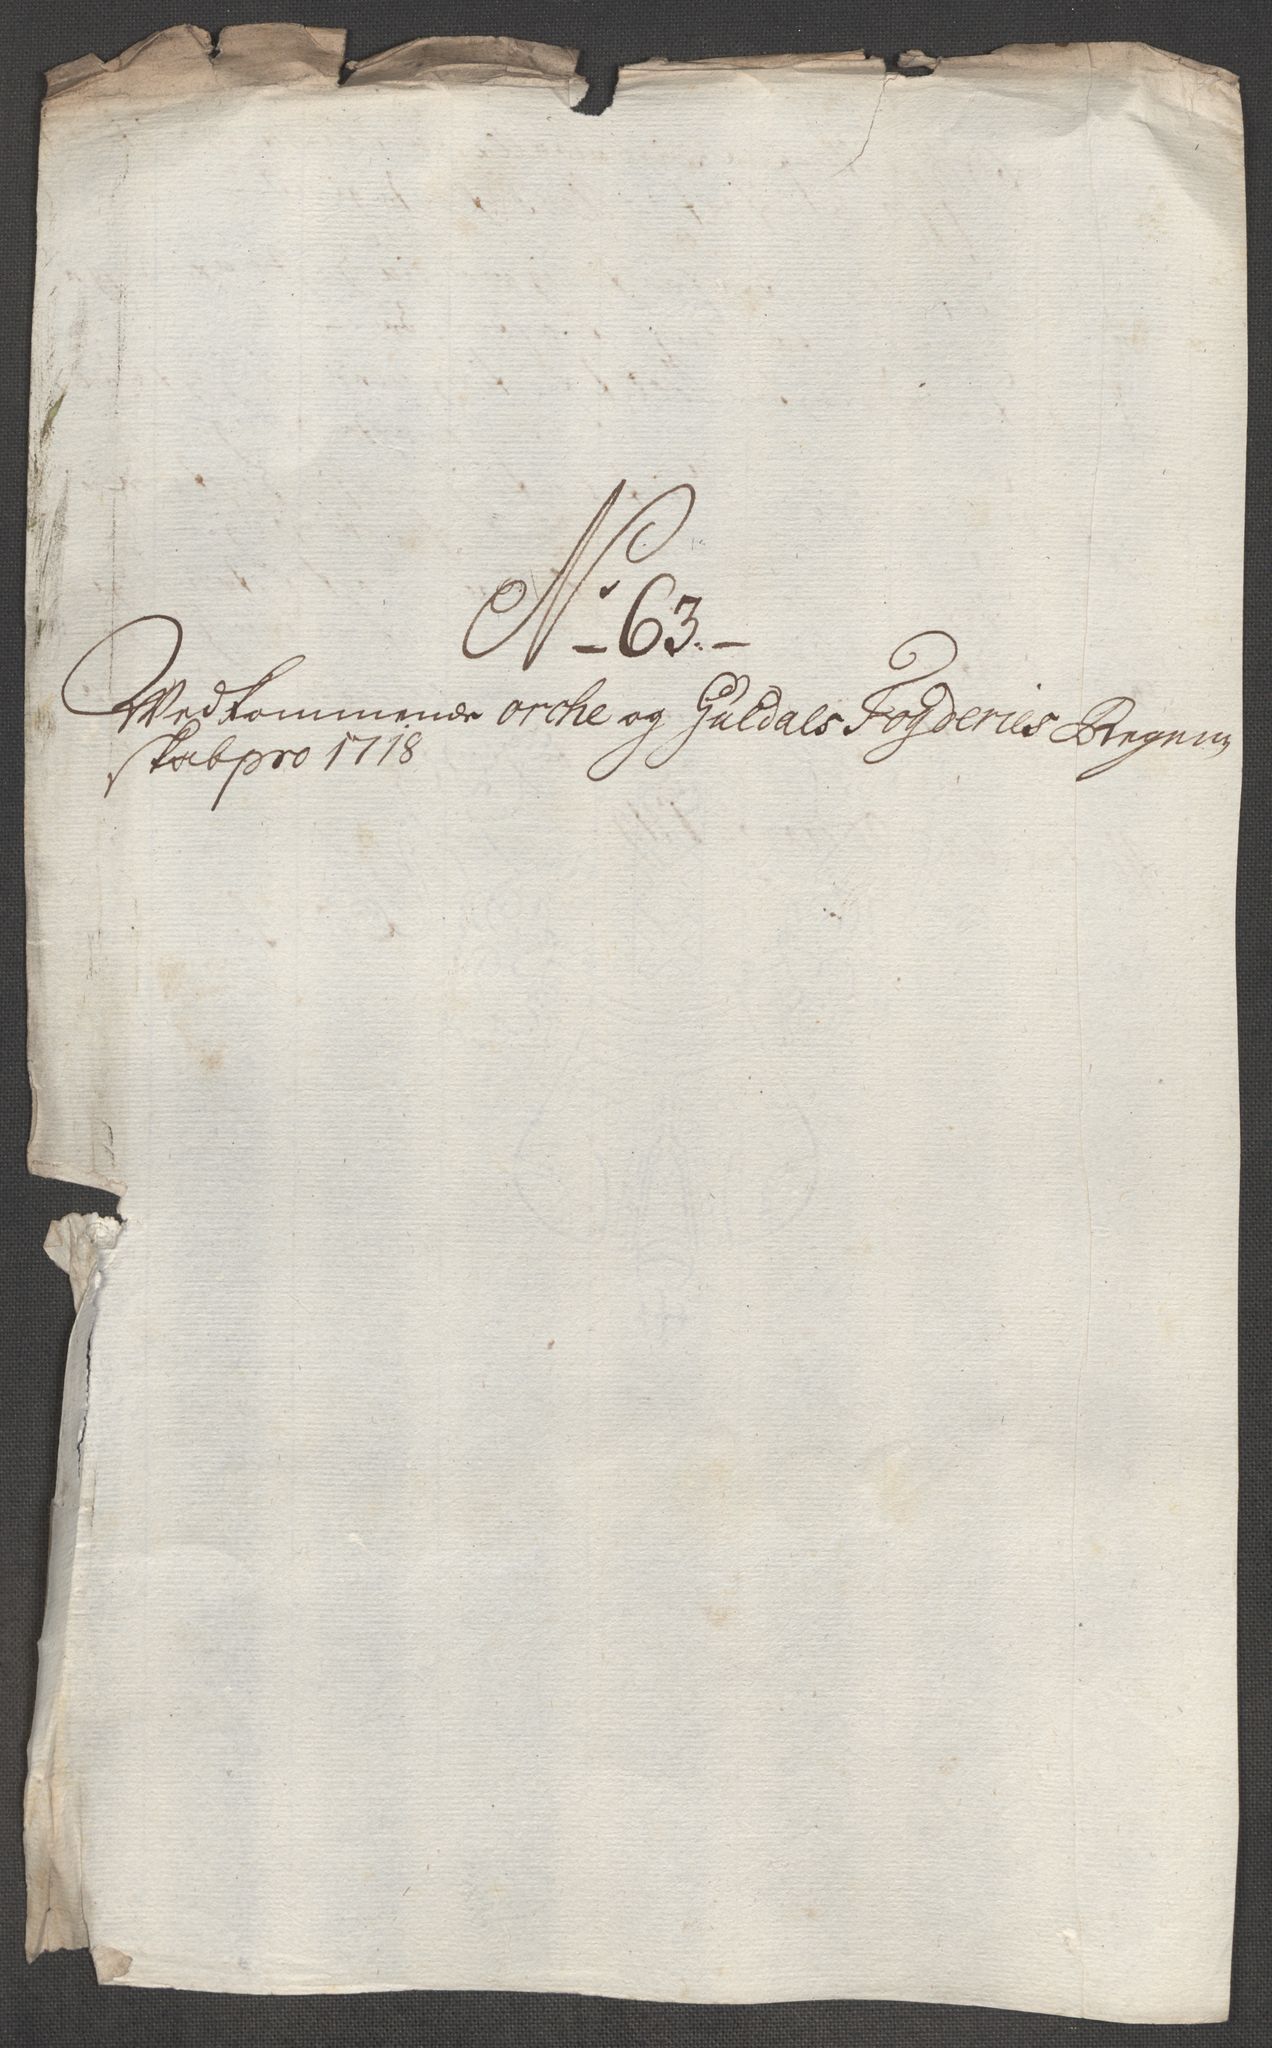 No 63.
Vedkommende orche og Guldals Fogderies Regen,
skab pro 1718